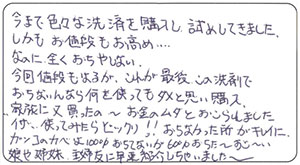 今まで色々な洗剤を購入し、試めしてきました。
しかも お値段もお高め‥‥
なのに、全くおちやしない。
今回値段もはるが、これが最後、この洗剤で
おちないんなら何を使ってもダメと思い購入。
家族に 又買ったの～ お金のムダとおこられました
イザ、使ってみたらビックリ!! おちなかった所がキレイに。
カベは100%おちてないが 60%おちた～すご～い
娘や姉妹、主婦友に早速紹介しちゃいました～